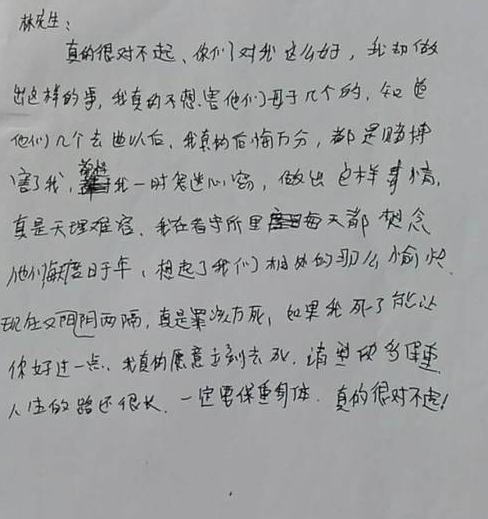 林先生：
真的很对不起、你们对我这么好，我却做
出这样的事，我真的不想害他们母子几个的，知道
他们几个去世以后、我真的后悔万分，都是赌博
害了我，我一时鬼迷心窍，做出这样事情，
真是天理难容、我在看守所里每天都想念
他们度日于年，想起了我们相处的那么愉快、
现在又阴阴两隔，真是罪该万死，如果我死了能让
你好过一点、我真的愿意立刻去死，请多保重
人生的路还很长、一定要保重身体、真的很对不起！